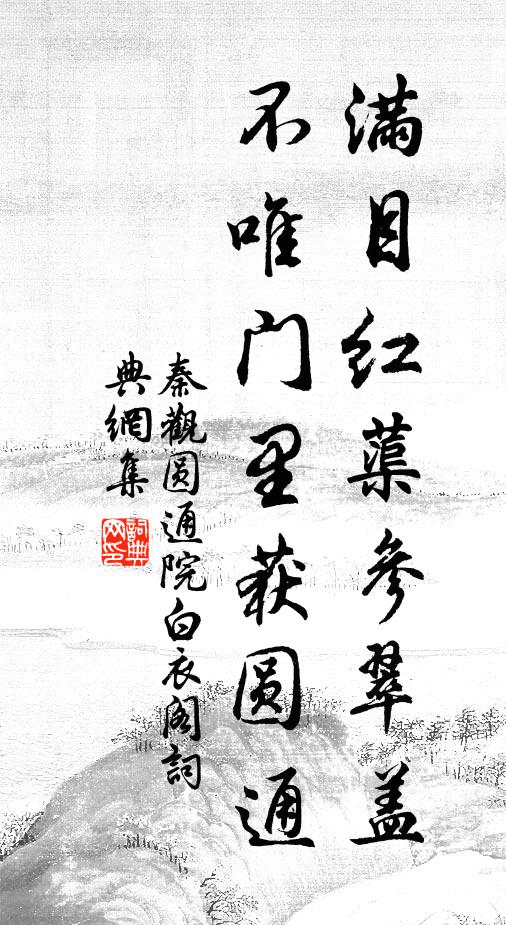 满目红蕖参翠盖
不唯门里获圆通
秦觀圆通院白衣阁詞
典網集
詞典
网印